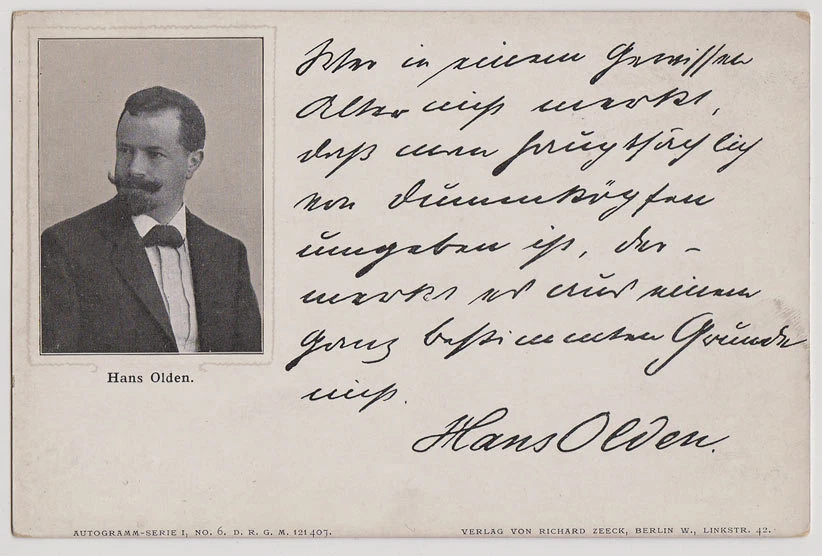 Wer in einem gewissen
Alter nicht merkt,
daß man hauptsächlich
von Dummköpfen
umgeben ist, der –
merkt es aus einem
ganz bestimmten Grunde
nicht.
Hans Olden.
Hans Olden.
AUTOGRAMM-SERIE I, NO. 6. D. R. G. M. 121407.
VERLAG VON RICHARD ZEECK, BERLIN W., LINKSTR. 42.